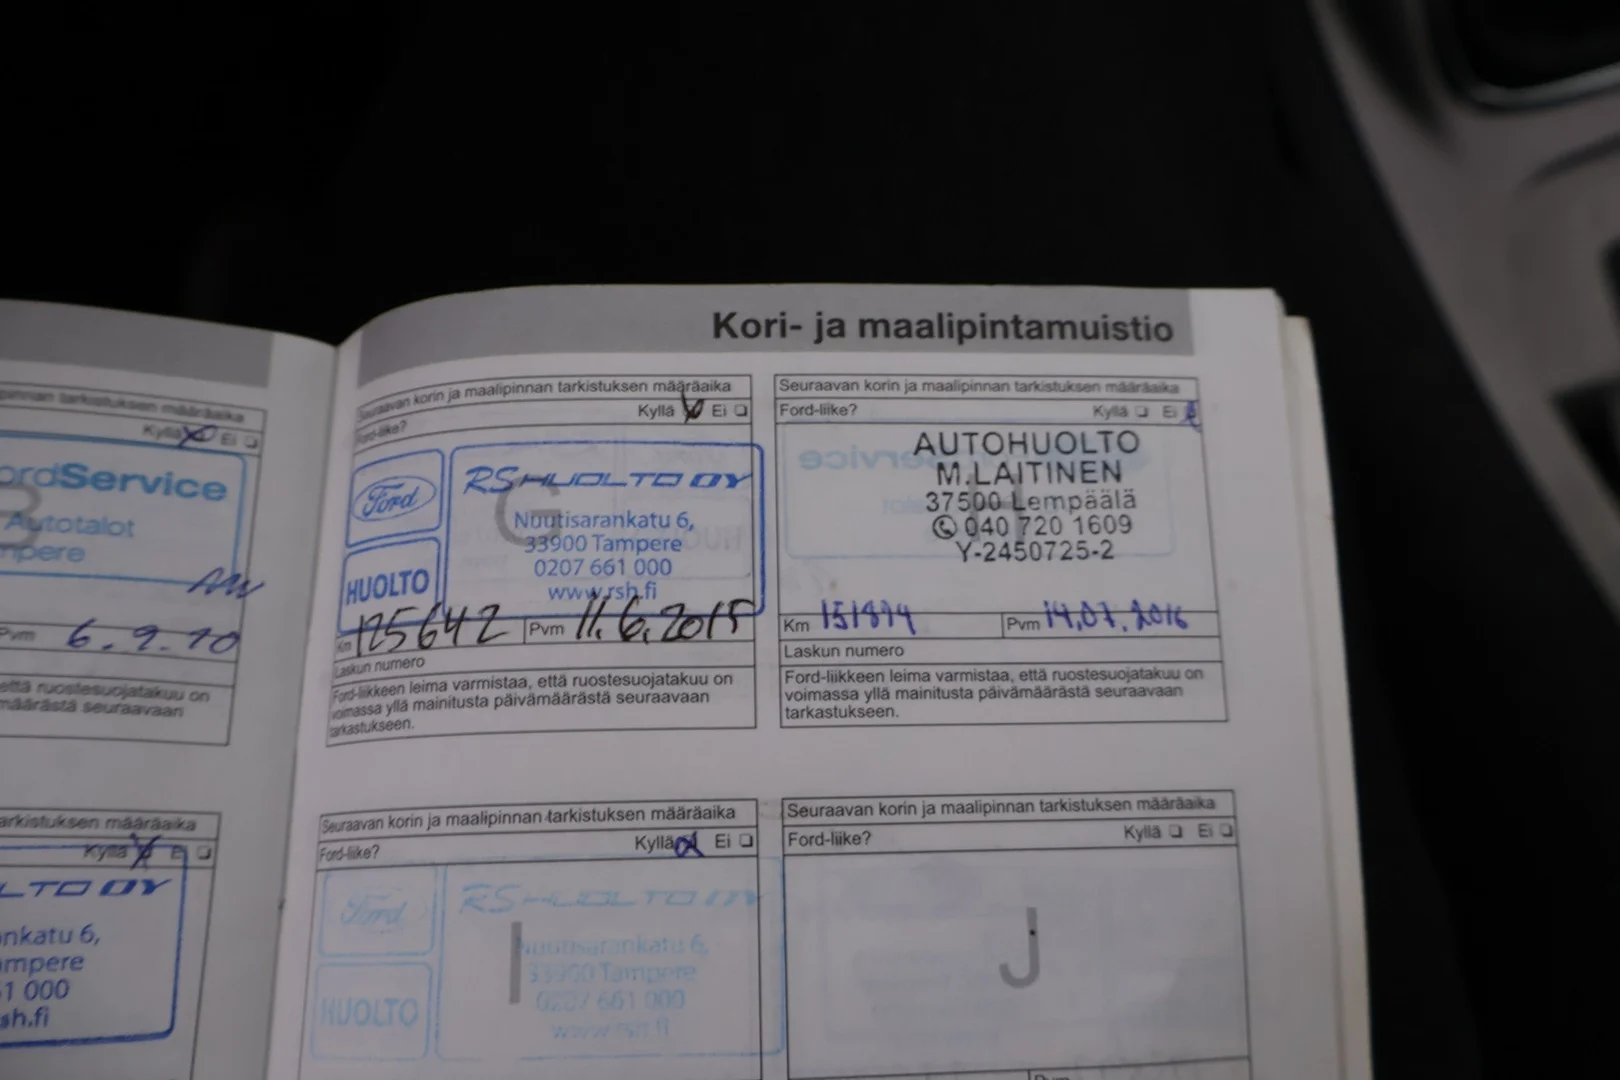 Kori- ja maalipintamuistio
tarkistuksen määräaika
Kyllä Ei
ordService
Autotalot
mpere
Pvm 6.9.10
että ruostesuojatakuu on
määrästä seuraavaan
Seuraavan korin ja maalipinnan tarkistuksen määräaika
Ford-liike? Kyllä Ei
Ford
HUOLTO
RS HUOLTO OY
G
Nuutisarankatu 6,
33900 Tampere
0207 661 000
www.rsh.fi
Km 125642 Pvm 11.6.2015
Laskun numero
Ford-liikkeen leima varmistaa, että ruostesuojatakuu on
voimassa yllä mainitusta päivämäärästä seuraavaan
tarkastukseen.
Seuraavan korin ja maalipinnan tarkistuksen määräaika
Ford-liike? Kyllä Ei
AUTOHUOLTO
M.LAITINEN
37500 Lempäälä
040 720 1609
Y-2450725-2
Km Pvm 14.07.2016
Laskun numero
Ford-liikkeen leima varmistaa, että ruostesuojatakuu on
voimassa yllä mainitusta päivämäärästä seuraavaan
tarkastukseen.
arkistuksen määräaika
Kyllä Ei
LTO OY
nkatu 6,
ampere
61 000
sh.fi
Seuraavan korin ja maalipinnan tarkistuksen määräaika
Ford-liike? Kyllä Ei
Ford
HUOLTO
RS HUOLTO OY
I
Nuutisarankatu 6,
33900 Tampere
0207 661 000
www.rsh.fi
Seuraavan korin ja maalipinnan tarkistuksen määräaika
Ford-liike? Kyllä Ei
J